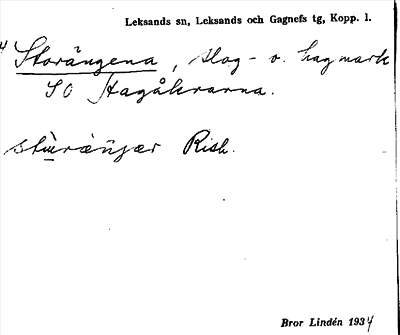 Leksands sn, Leksands och Gagnefs tg, Kopp. l.
Storängena, slog- o. hagmark
SO Hagåkrarna.
Rish.
Bror Lindén 1934